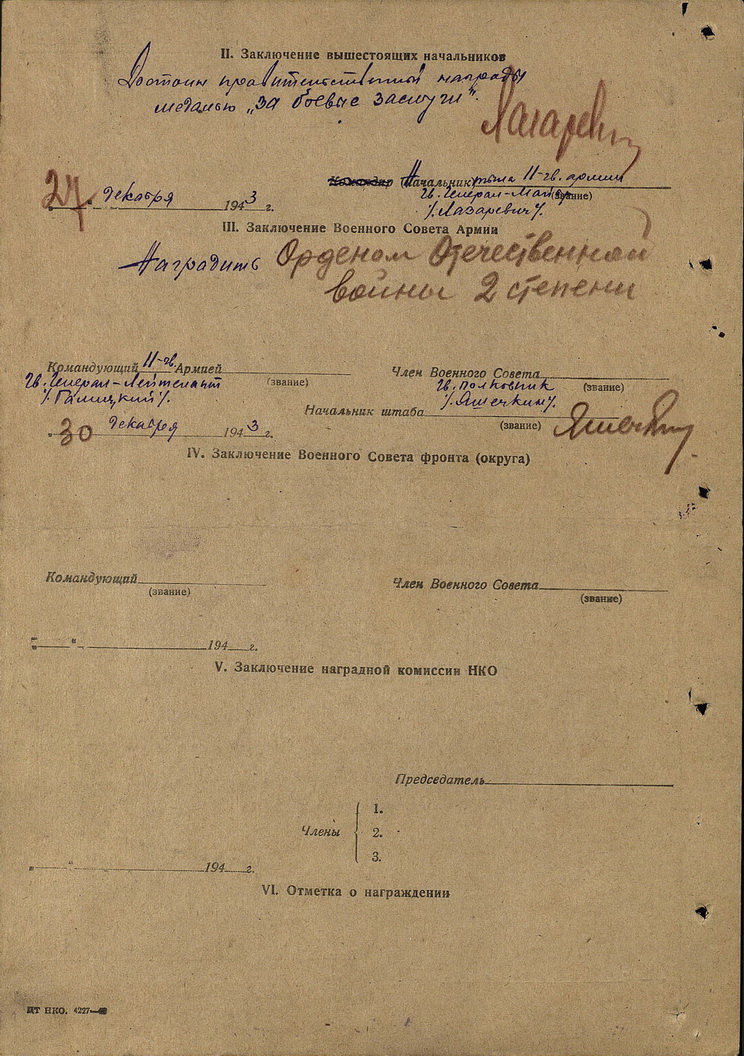 II. Заключение вышестоящих начальников
Достоин правительственной награды
медалью „За боевые заслуги".
Лазаревич
Командир Начальник тыла 11-гв. армии
27 декабря 1943 г.
Гв. Генерал-Майор (звание)
/Лазаревич/.
III. Заключение Военного Совета Армии
Наградить Орденом Отечественной
войны 2 степени
Командующий 11-гв. Армией
Член Военного Совета
Гв. Генерал-Лейтенант (звание)
Гв. полковник (звание)
/Галицкий/.
/Яшечкин/.
Начальник штаба
(звание)
30 декабря 1943 г.
IV. Заключение Военного Совета фронта (округа)
Командующий
Член Военного Совета
(звание)
(звание)
„ " 194 г.
V. Заключение наградной комиссии НКО
Председатель
Члены
1.
2.
3.
„ " 194 г.
VI. Отметка о награждении
ЦТ НКО. 4227